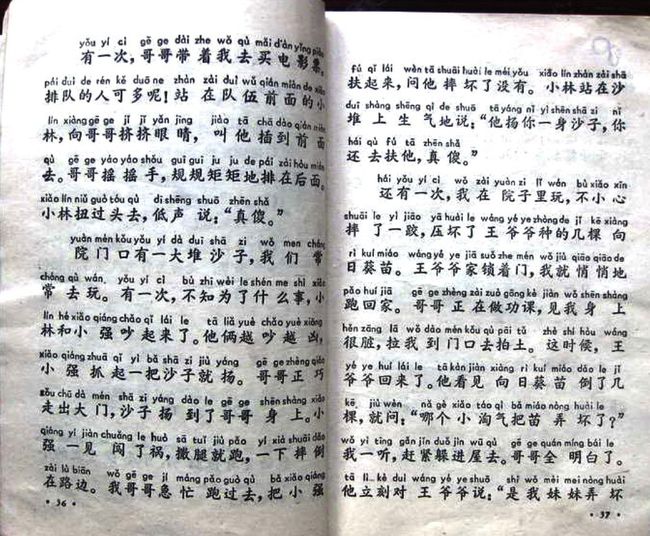 yǒu yí cì gē ge dài zhe wǒ qù mǎi diàn yǐng piào
有一次，哥哥带着我去买电影票。
pái duì de rén kě duō ne zhàn zài duì wǔ qián miàn de xiǎo
排队的人可多呢！站在队伍前面的小
lín xiàng gē ge jǐ jǐ yǎn jing jiào tā chā dào qián miàn
林，向哥哥挤挤眼睛，叫他插到前面
qù gē ge yáo yáo shǒu guī gui jǔ ju de pái zài hòu miàn
去。哥哥摇摇手，规规矩矩地排在后面。
xiǎo lín niǔ guò tóu qù dī shēng shuō zhēn shǎ
小林扭过头去，低声说：“真傻。”
yuàn mén kǒu yǒu yí dà duī shā zi wǒ men cháng
院门口有一大堆沙子，我们常
cháng qù wán yǒu yí cì bù zhī wèi le shén me shì xiǎo
常去玩。有一次，不知为了什么事，小
lín hé xiǎo qiáng chǎo qǐ lái le tā liǎ yuè chǎo yuè xiōng
林和小强吵起来了。他俩越吵越凶，
xiǎo qiáng zhuā qǐ yì bǎ shā zi jiù yáng gē ge zhèng qiǎo
小强抓起一把沙子就扬。哥哥正巧
zǒu chū dà mén shā zi yáng dào le gē ge shēn shàng xiǎo
走出大门，沙子扬到了哥哥身上。小
qiáng yí jiàn chuǎng le huò sā tuǐ jiù pǎo yí xià shuāi dǎo
强一见闯了祸，撒腿就跑，一下摔倒
zài lù biān wǒ gē ge jí máng pǎo guò qù bǎ xiǎo qiáng
在路边。我哥哥急忙跑过去，把小强
· 36 ·
fú qǐ lái wèn tā shuāi huài le méi yǒu xiǎo lín zhàn zài shā
扶起来，问他摔坏了没有。小林站在沙
duī shàng shēng qì de shuō tā yáng nǐ yì shēn shā zi nǐ
堆上生气地说：“他扬你一身沙子，你
hái qù fú tā zhēn shǎ
还去扶他，真傻。”
hái yǒu yí cì wǒ zài yuàn zi lǐ wán bù xiǎo xīn
还有一次，我在院子里玩，不小心
shuāi le yì jiāo yā huài le wáng yé ye zhòng de jǐ kē xiàng
摔了一跤，压坏了王爷爷种的几棵向
rì kuí miáo wáng yé ye jiā suǒ zhe mén wǒ jiù qiāo qiāo de
日葵苗。王爷爷家锁着门，我就悄悄地
pǎo huí jiā gē ge zhèng zài zuò gōng kè jiàn wǒ shēn shàng
跑回家。哥哥正在做功课，见我身上
hěn zāng lā wǒ dào mén kǒu qù pāi tǔ zhè shí hòu wáng
很脏，拉我到门口去拍土。这时候，王
yé ye huí lái le tā kàn jiàn xiàng rì kuí miáo dǎo le jǐ
爷爷回来了。他看见向日葵苗倒了几
kē jiù wèn nǎ gè xiǎo táo qì bǎ miáo nòng huài le
棵，就问：“哪个小淘气把苗弄坏了？”
wǒ yì tīng gǎn jǐn duǒ jìn wū qù gē ge quán míng bái le
我一听，赶紧躲进屋去。哥哥全明白了。
tā lì kè duì wáng yé ye shuō shì wǒ mèi mei nòng huài
他立刻对王爷爷说：“是我妹妹弄坏
· 37 ·